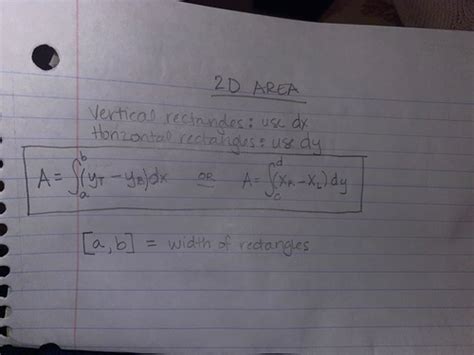 2D AREA
Vertical rectangles: use dx
Horizontal rectangles: use dy
A = ∫_a^b (y_T - y_B) dx OR A = ∫_c^d (x_R - x_L) dy
[a, b] = width of rectangles